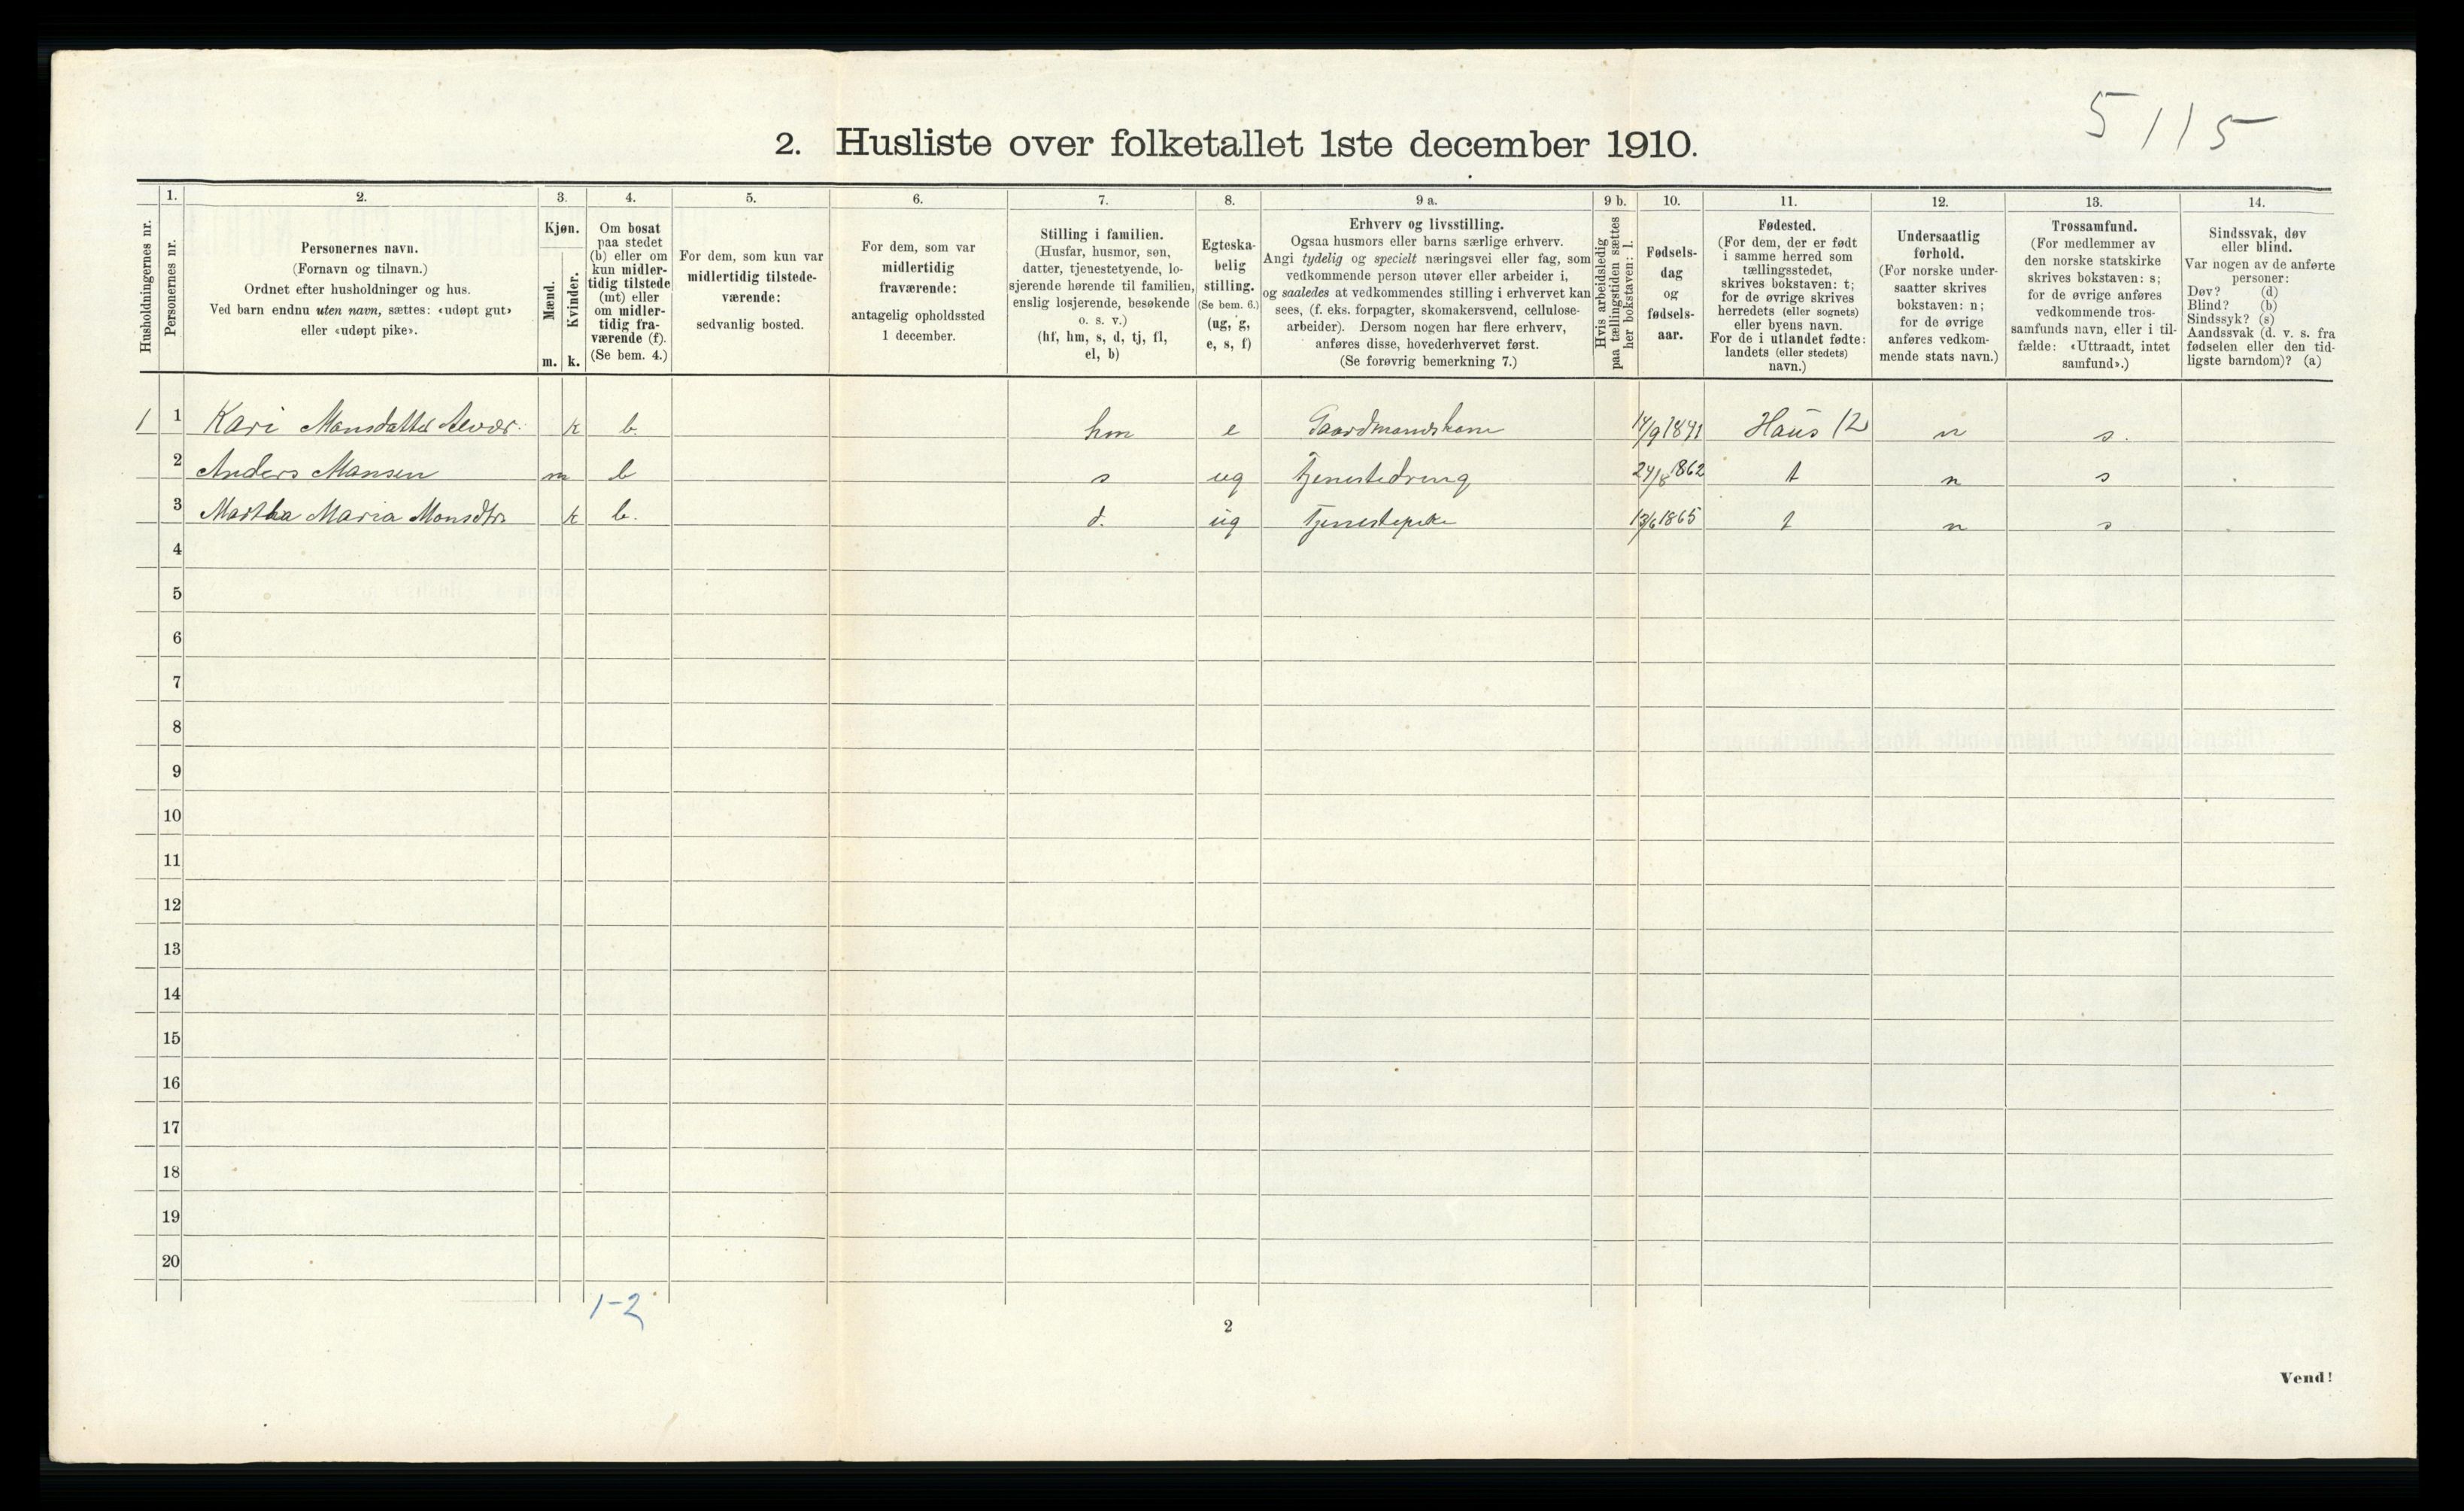 5115
2. Husliste over folketallet 1ste december 1910.
Husholdningernes nr.
1. Personernes nr.
2. Personernes navn.
(Fornavn og tilnavn.)
Ordnet efter husholdninger og hus.
Ved barn endnu uten navn, sættes: «udøpt gut»
eller «udøpt pike».
3. Kjøn.
Mænd. m.
Kvinder. k.
4. Om bosat
paa stedet
(b) eller om
kun midler-
tidig tilstede
(mt) eller
om midler-
tidig fra-
værende (f).
(Se bem. 4.)
5. For dem, som kun var
midlertidig tilstede-
værende:
sedvanlig bosted.
6. For dem, som var
midlertidig
fraværende:
antagelig opholdssted
1 december.
7. Stilling i familien.
(Husfar, husmor, søn,
datter, tjenestetyende, lo-
sjerende hørende til familien,
enslig losjerende, besøkende
o. s. v.)
(hf, hm, s, d, tj, fl,
el, b)
8. Egteska-
belig
stilling.
(Se bem. 6.)
(ug, g,
e, s, f)
9 a. Erhverv og livsstilling.
Ogsaa husmors eller barns særlige erhverv.
Angi tydelig og specielt næringsvei eller fag, som
vedkommende person utøver eller arbeider i,
og saaledes at vedkommendes stilling i erhvervet kan
sees, (f. eks. forpagter, skomakersvend, cellulose-
arbeider). Dersom nogen har flere erhverv,
anføres disse, hovederhvervet først.
(Se forøvrig bemerkning 7.)
9 b. Hvis arbeidsledig
paa tællingstiden sættes
her bokstaven: l.
10. Fødsels-
dag
og
fødsels-
aar.
11. Fødested.
(For dem, der er født
i samme herred som
tællingsstedet,
skrives bokstaven: t;
for de øvrige skrives
herredets (eller sognets)
eller byens navn.
For de i utlandet fødte:
landets (eller stedets)
navn.)
12. Undersaatlig
forhold.
(For norske under-
saatter skrives
bokstaven: n;
for de øvrige
anføres vedkom-
mende stats navn.)
13. Trossamfund.
(For medlemmer av
den norske statskirke
skrives bokstaven: s;
for de øvrige anføres
vedkommende tros-
samfunds navn, eller i til-
fælde: «Uttraadt, intet
samfund».)
14. Sindssvak, døv
eller blind.
Var nogen av de anførte
personer:
Døv? (d)
Blind? (b)
Sindssyk? (s)
Aandssvak (d. v. s. fra
fødselen eller den tid-
ligste barndom)? (a)
1 1 Kari Monsdatter k b. hm e Gaardmandskone Haus 12 n s.
2 Anders Monsen m b s ug Tjenestedreng 24/8 1862 t n s
3 Martha Maria Monsdtr k b. d. ug Tjenestepike 13/6 1865 t n s
4
5
6
7
8
9
10
11
12
13
14
15
16
17
18
19
20
1-2
2
Vend!